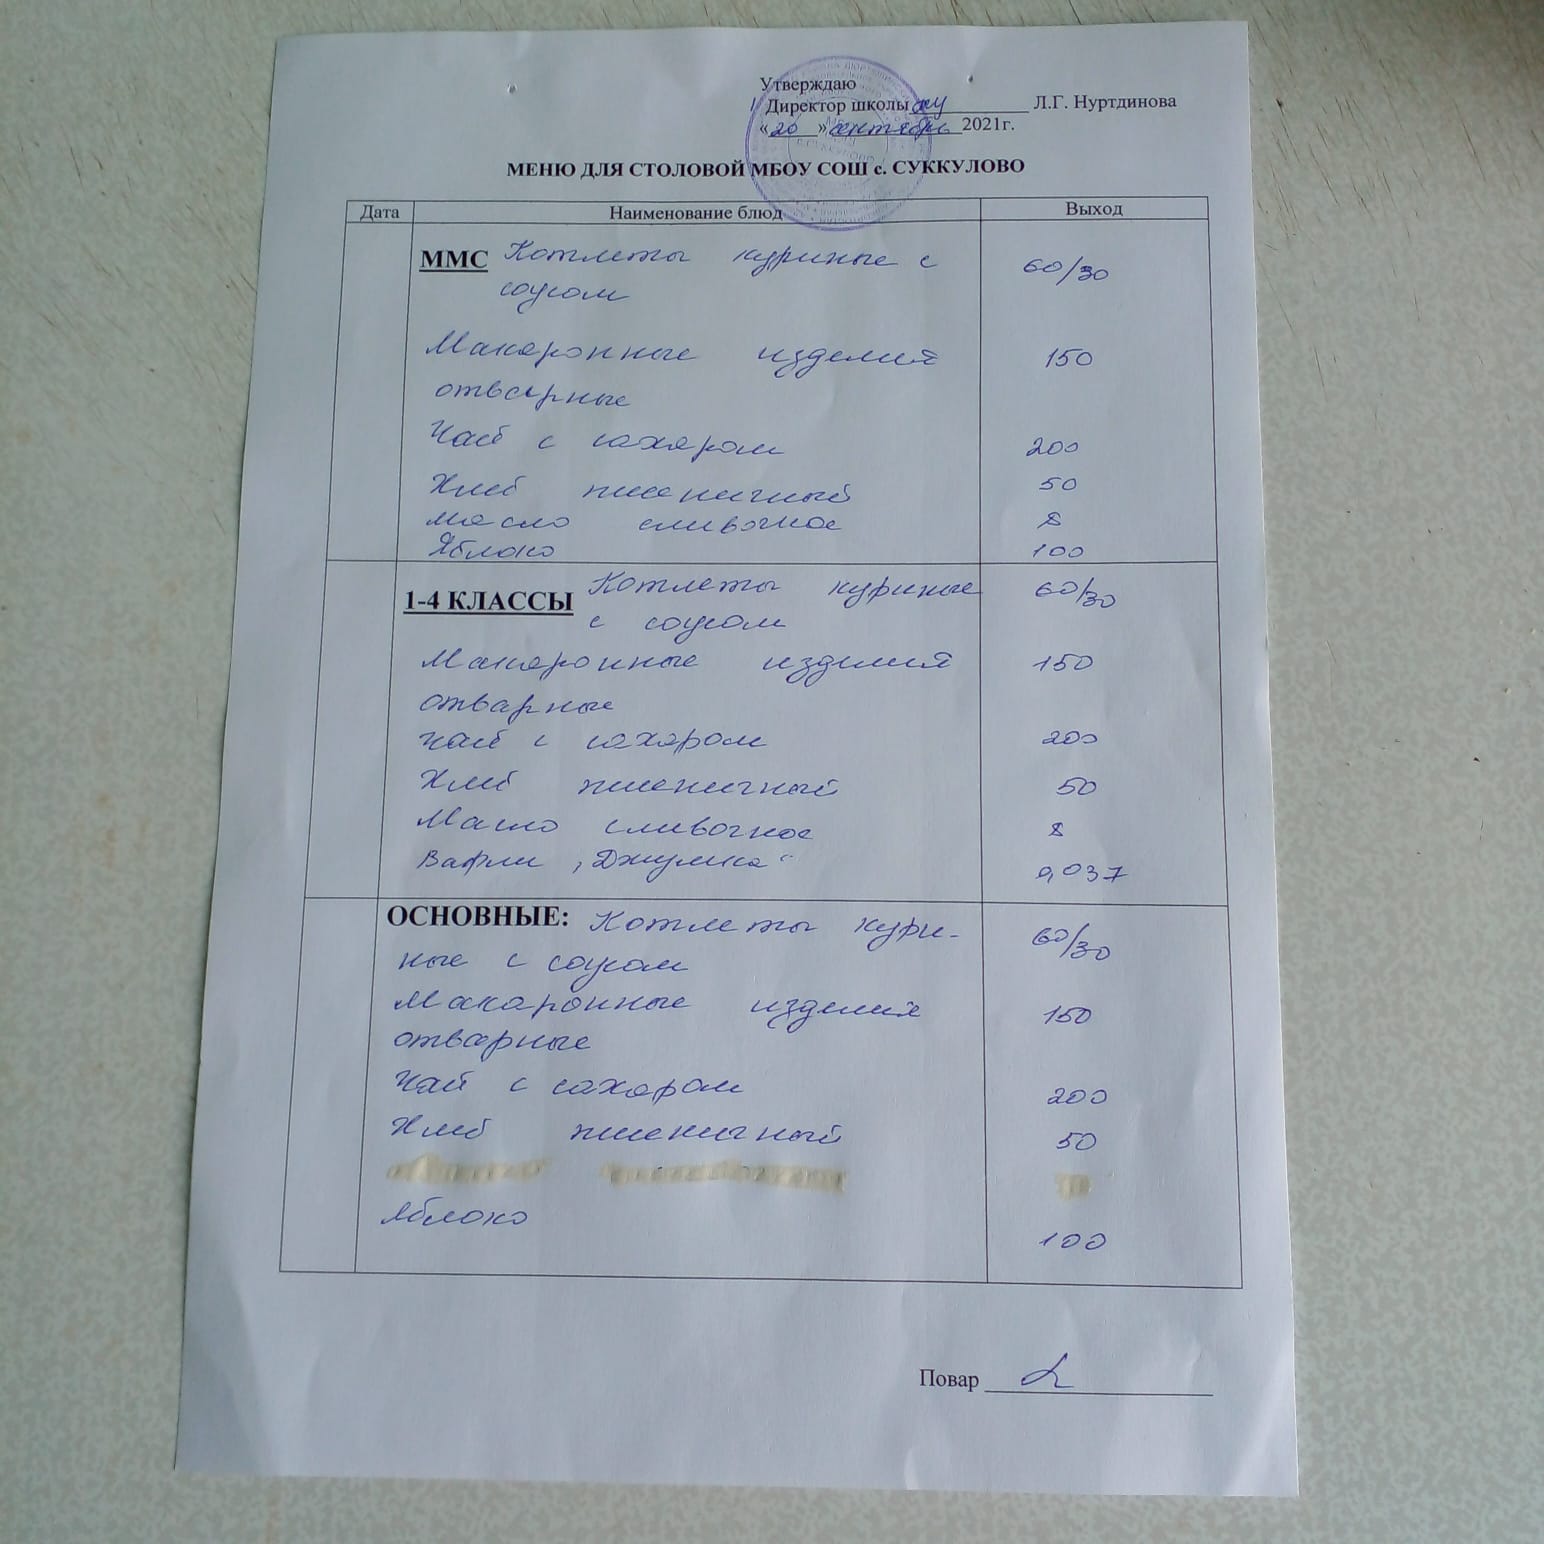 Утверждаю
Директор школы Л.Г. Нуртдинова
«20» сентября 2021г.
МЕНЮ ДЛЯ СТОЛОВОЙ МБОУ СОШ с. СУККУЛОВО
Дата Наименование блюд Выход
ММС Котлеты куриные с 60/30
соусом
Макаронные изделия 150
отварные
Чай с сахаром 200
Хлеб пшеничный 50
Масло сливочное 8
Яблоко 100
1-4 КЛАССЫ Котлеты куриные 60/30
с соусом
Макаронные изделия 150
отварные
Чай с сахаром 200
Хлеб пшеничный 50
Масло сливочное 8
Вафли "Джулика" 0,037
ОСНОВНЫЕ: Котлеты кури- 60/30
ные с соусом
Макаронные изделия 150
отварные
Чай с сахаром 200
Хлеб пшеничный 50
Яблоко 100
Повар